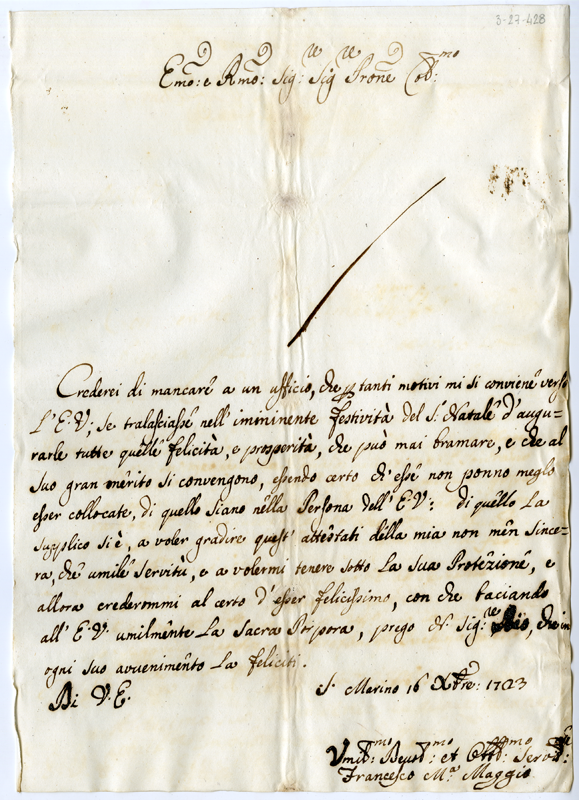 3-27-428
Emo: e Rmo: Sig:re Sig:re Prone Col:mo
Crederei di mancare a un ufficio, che p tanti motivi mi si conviene verso
L'E.V; se tralasciasse nell'imminente festività del S. Natale d'augu=
rarle tutte quelle felicità, e prosperità, che può mai bramare, e che al
suo gran merito si convengono, essendo certo ch'esse non ponno meglo
esser collocate, di quello siano nella Persona dell'E.V: di quello La
supplico si è, a voler gradire quest'attestati della mia non men since=
ra, che umile servitù, e a volermi tenere sotto La sua Protezione, e
allora crederommi al certo d'esser felicissimo, con che baciando
all'E.V. umilmente La Sacra Porpora, prego N. Sig:re Dio, che in
ogni suo avvenimento La feliciti.
Di V.E. S. Marino 16 Xbre: 1723
Umil:mo Devot:mo et Obb:mo Serv:re
Francesco M.a Maggio